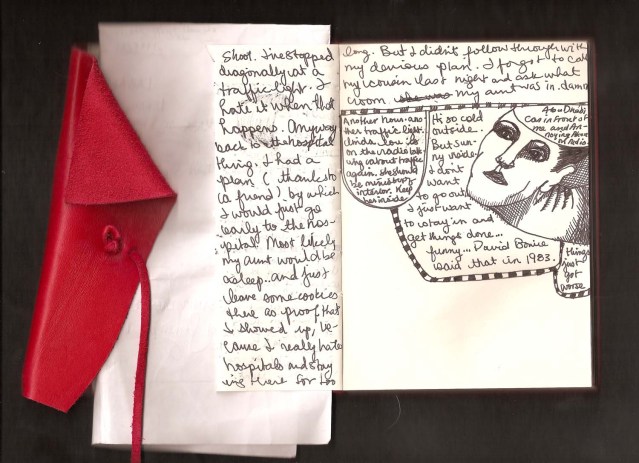 Shoot. I've stopped
diagonally at a
traffic light. I
hate it when that
happens. Anyway
back to the hospital
thing. I had a
plan (thanks to
(a friend) by which
I would just go
early to the hos-
pital. Most likely
my aunt would be
asleep..and just
leave some cookies
there as proof that
I showed up, be-
cause I really hate
hospitals and stay
ing there for too
long. But I didn't follow through with
my devious plan. I forgot to call
my cousin last night and ask what
room she was my aunt was in. damn
Another hour. ano
ther traffic light.
linda Lou is
on the radio talk
ing about traffic
again. She should
be minister of
interior. Keep
her inside.
Hi so cold
outside.
But sun-
ny inside
I don't
want
to go out
I just want
to stay in and
get things done...
funny... David Bowie
said that in 1983.
Abu Dhabi
Car in front of
me and An-
noying Abu
D Radio
things
just
got
worse